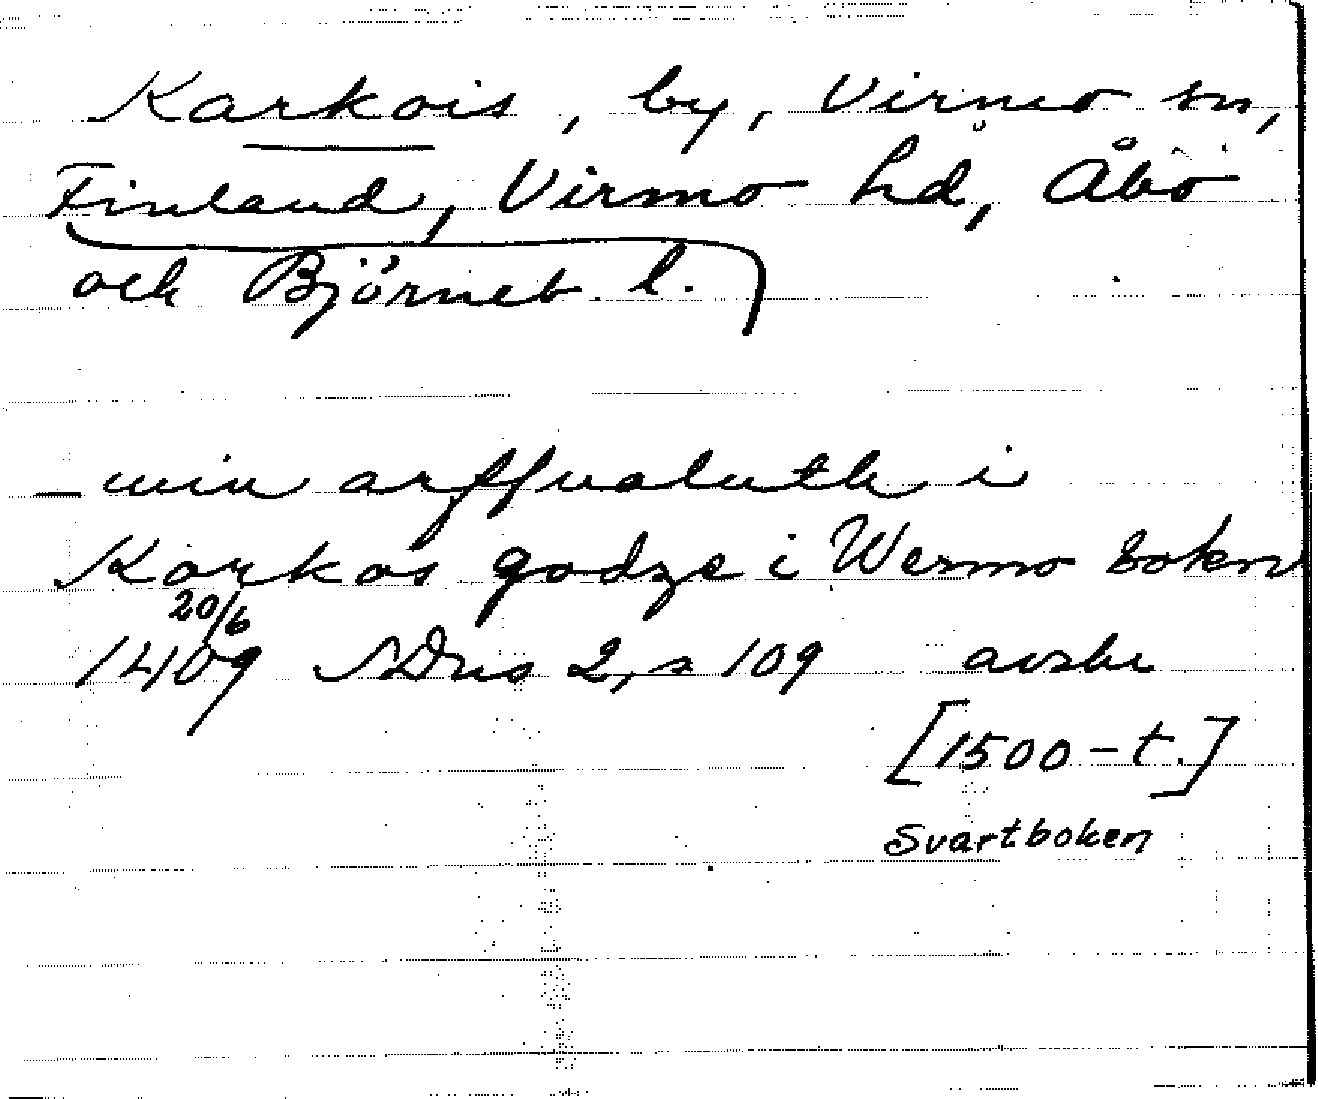 Karkois, by, Virmo sn,
Finland, Virmo hd, Åbo
och Björneb. l.
– min arffualuth i
Karkos godze i Wermo sokn
20/6
1409 SDns 2, s 109 avskr
[1500-t.]
Svartboken